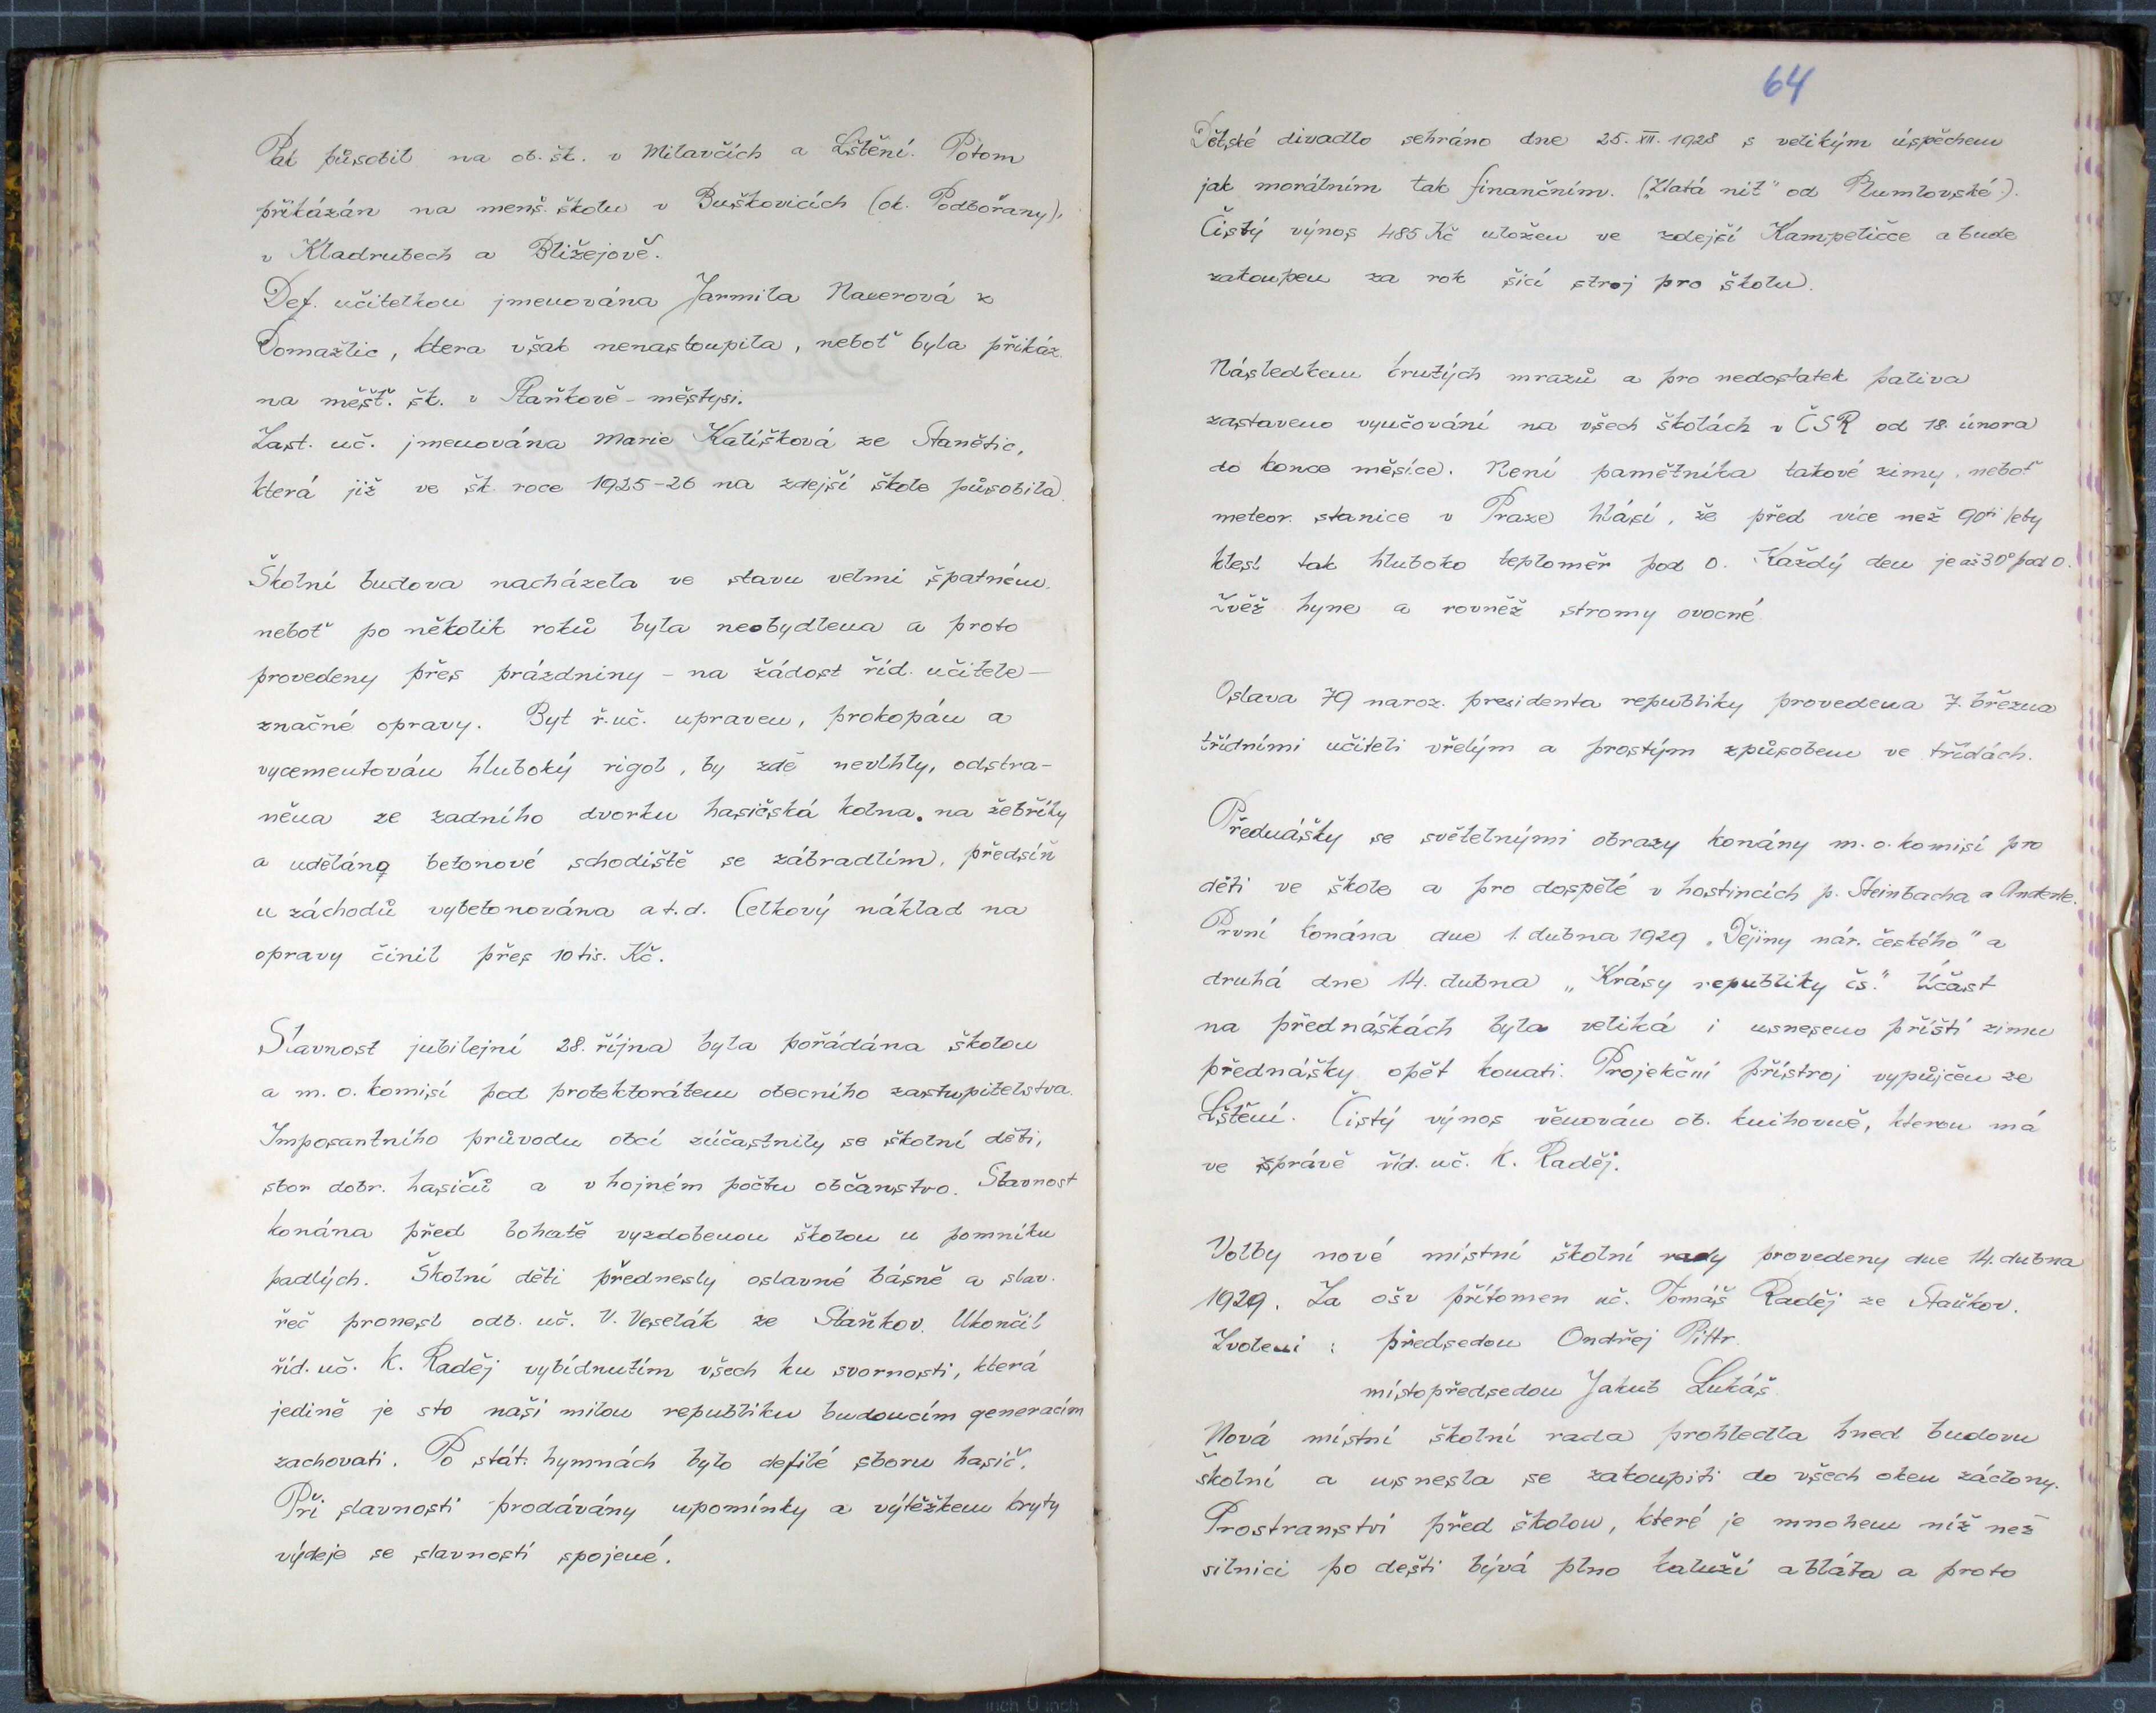 Pak působil na ob. šk. v Milavčích a Lštění. Potom
přikázán na menš. školu v Buškovicích (ok. Podbořany),
v Kladrubech a Bližejově.
Def. učitelkou jmenována Jarmila Nauerová z
Domažlic, ktera však nenastoupila, neboť byla přikáz.
na měšť. šk. v Staňkově - městysi.
Zast. uč. jmenována Marie Kalíšková ze Stanětic,
která již ve šk. roce 1925-26 na zdejší škole působila.
Školní budova nacházela ve stavu velmi špatném.
neboť po několik roků byla neobydlena a proto
provedeny přes prázdniny - na žádost říd. učitele -
značné opravy. Byt ř. uč. upraven, prokopán a
vycementován hluboký rigol, by zdě nevlhly, odstra-
něna ze zadního dvorku hasičská kolna. na žebříky
a uděláno betonové schodiště se zábradlím, předsíň
u záchodů vybetonována a t. d. Celkový náklad na
opravy činil přes 10 tis. Kč.
Slavnost jubilejní 28. října byla pořádána školou
a m. o. komisí pod protektorátem obecního zastupitelstva.
Imposantního průvodu obcí zúčastnily se školní děti,
sbor dobr. hasičů a v hojném počtu občanstvo. Slavnost
konána před bohatě vyzdobenou školou u pomníku
padlých. Školní děti přednesly oslavné básně a slav.
řeč pronesl odb. uč. V. Veselák ze Staňkov. Ukončil
říd. uč. K. Raděj vybídnutím všech ku svornosti, která
jedině je sto naši milou republiku budoucím generacím
zachovati. Po stát. hymnách bylo defilé sboru hasič.
Při slavnosti prodávány upomínky a výtěžkem kryty
výdeje se slavností spojené.
64
Dětské divadlo sehráno dne 25. XII. 1928 s velikým úspěchem
jak morálním tak finančním. („Zlatá nit" od Rumlovské).
Čistý výnos 485 Kč uložen ve zdejší Kampeličce a bude
zakoupen za rok šicí stroj pro školu.
Následkem krutých mrazů a pro nedostatek paliva
zastaveno vyučování na všech školách v ČSR od 18. února
do konce měsíce. Není pamětníka takové zimy, neboť
meteor. stanice v Praze hlásí, že před více než 90ti lety
klesl tak hluboko teploměr pod 0. Každý den je až 30° pod 0.
Zvěř hyne a rovněž stromy ovocné.
Oslava 79 naroz. presidenta republiky provedena 7. března
třídními učiteli vřelým a prostým způsobem ve třídách.
Přednášky se světelnými obrazy konány m. o. komisí pro
děti ve škole a pro dospělé v hostincích p. Steinbacha a Anderle.
První konána dne 1. dubna 1929 „Dějiny nár. českého" a
druhá dne 14. dubna „Krásy republiky čs." Účast
na přednáškách byla veliká i usneseno příští zimu
přednášky opět konati. Projekční přístroj vypůjčen ze
Lštění. Čistý výnos věnován ob. knihovně, kterou má
ve správě říd. uč. K. Raděj.
Volby nové místní školní rady provedeny dne 14. dubna
1929. Za ošv přítomen uč. Tomáš Raděj ze Staňkov.
Zvoleni : předsedou Ondřej Pittr.
místopředsedou Jakub Lukáš.
Nová místní školní rada prohledla hned budovu
školní a usnesla se zakoupiti do všech oken záclony.
Prostranství před školou, které je mnohem níž než
silnici po dešti bývá plno kaluží a bláta a proto